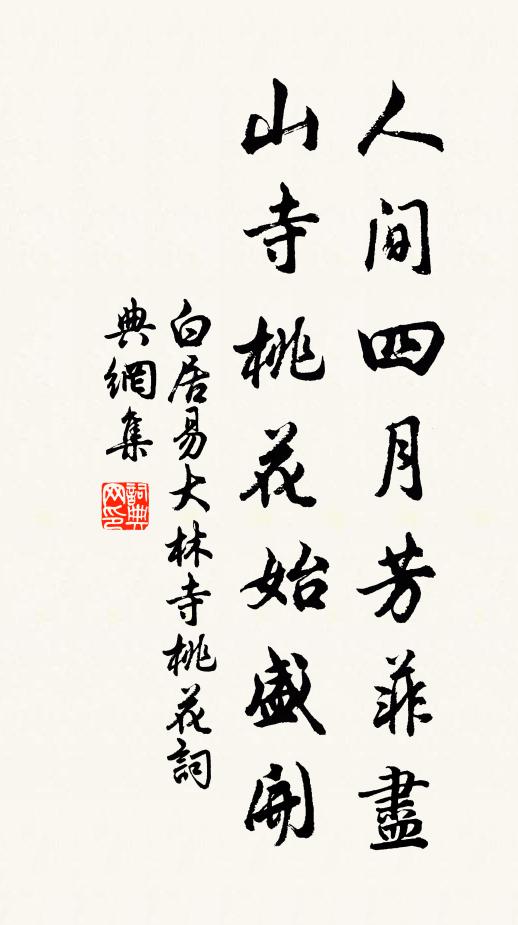 人間四月芳菲盡
山寺桃花始盛開
白居易大林寺桃花詞
典網集
詞典
网印